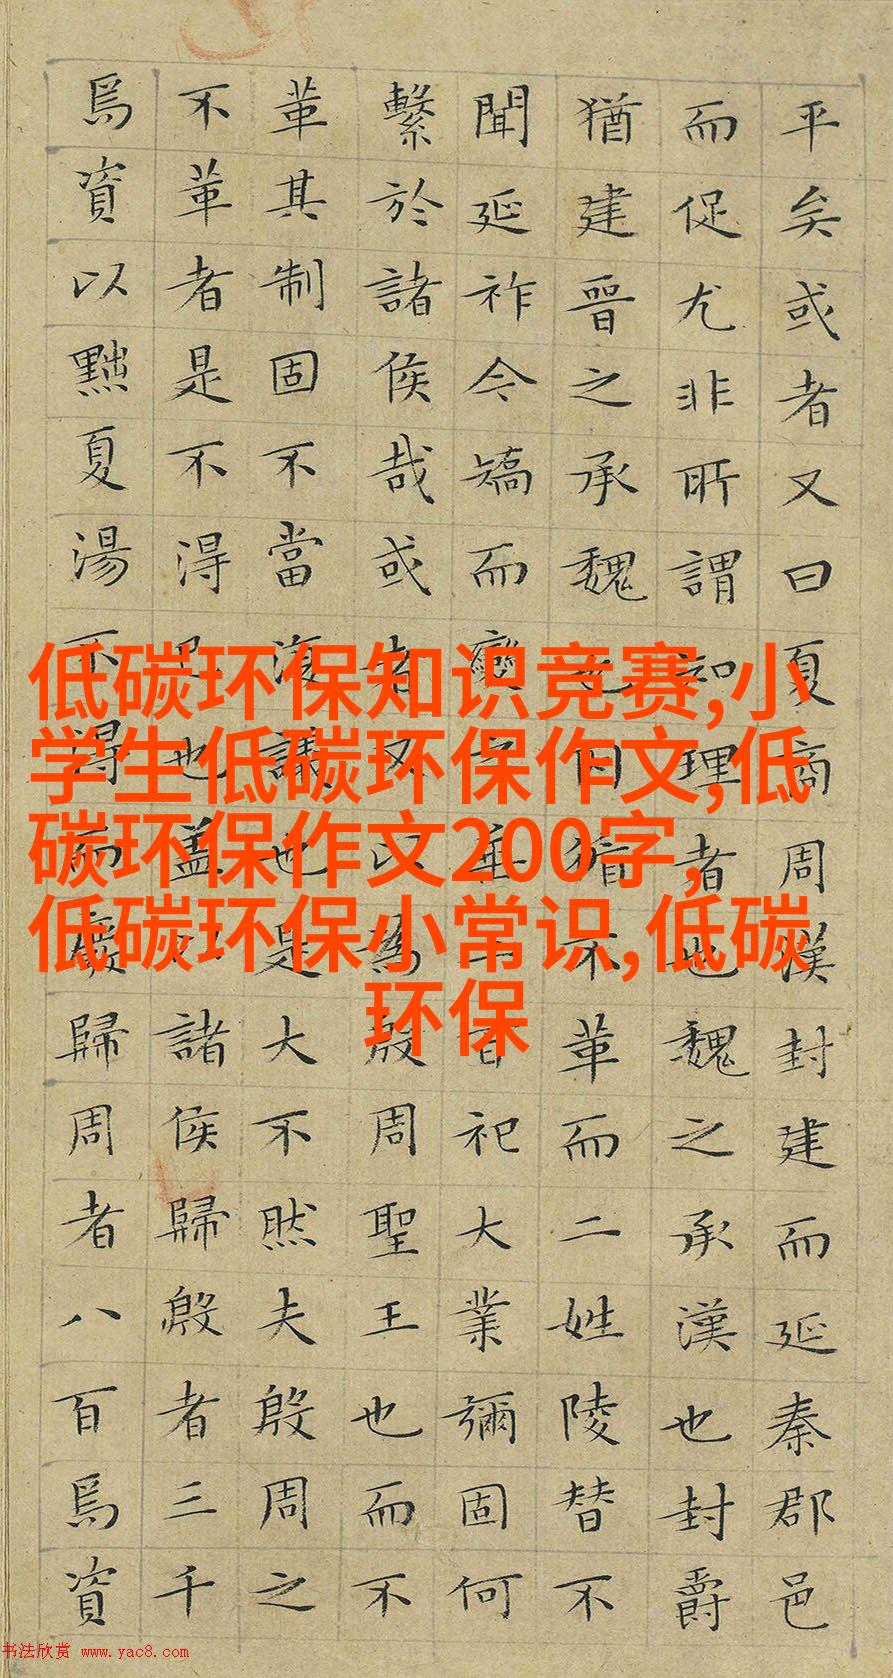 平矣或者又曰夏商周漢封建而延秦郡邑
而促尤非所謂知理者也魏之承漢也封爵
猶建晉之承魏也因循不革而二姓陵替不
聞延祚今矯而變之垂二百祀大業彌固何
繫於諸侯哉或者又以為殷周聖王也而不
革其制固不當復議也是大不然夫殷周之
不革者是不得已也盖以諸侯歸殷者三千
焉資以黜夏湯不得而廢歸周者八百焉資
低碳环保知识竞赛,小
学生低碳环保作文,低
碳环保作文200字，
低碳环保小常识,低碳
环保
书法欣赏 www.yac8.com